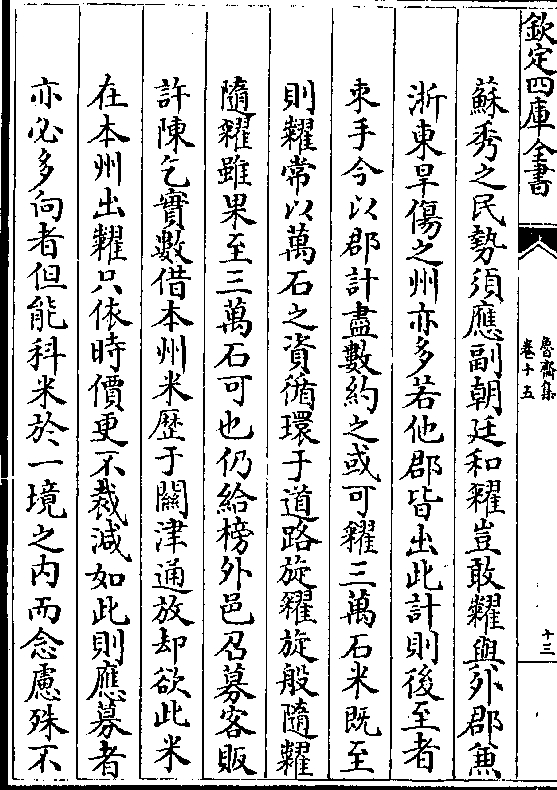 欽定四庫全書
魯齋集
卷十五
十三
蘇秀之民勢須應副朝廷和糴豈敢糶與外郡兼
浙東旱傷之州亦多若他郡皆出此計則後至者
束手今以郡計盡數約之或可糴三萬石米既至
則糶常以萬石之資循環于道路旋糴旋般隨糴
隨糶雖果至三萬石可也仍給榜外邑召募客販
許陳乞實數借本州米歴于關津通放却欲此米
在本州出糶只依時價更不裁減如此則應募者
亦必多向者但能科米於一境之内而念慮殊不